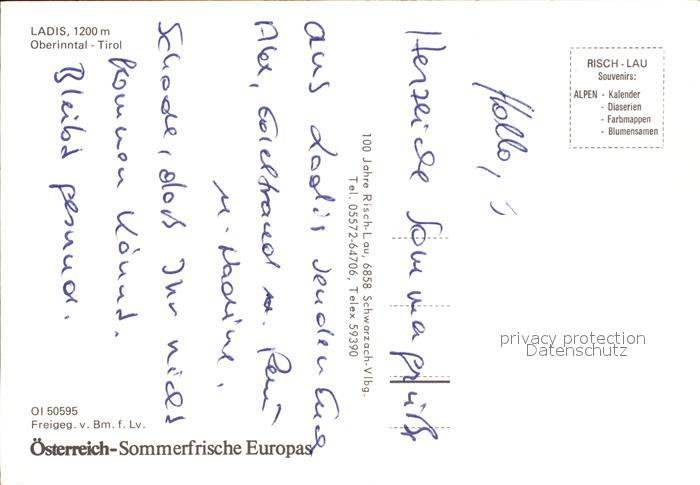 LADIS, 1200 m
Oberinntal - Tirol
RISCH - LAU
Souvenirs:
ALPEN - Kalender
- Diaserien
- Farbmappen
- Blumensamen
Hallo,
Herzliche Sommergrüße
aus Ladis senden Euch
Alex, Edeltraud u. René
u. Nadine.
Schade, daß Ihr nicht
kommen könnt.
Bleibt gesund.
100 Jahre Risch-Lau, 6858 Schwarzach-Vlbg.
Tel. 05572-64706, Telex 59390
privacy protection
Datenschutz
OI 50595
Freigeg. v. Bm. f. Lv.
Österreich-Sommerfrische Europas